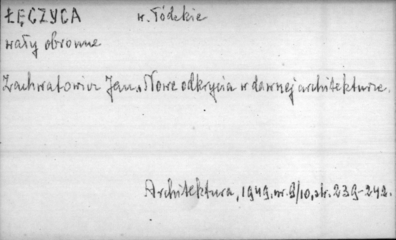 ŁĘCZYCA w. łódzkie
wały obronne
Zachwatowicz Jan, Nowe odkrycia w dawnej architekturze.
Architektura, 1949, nr. 9/10, str. 239-242.